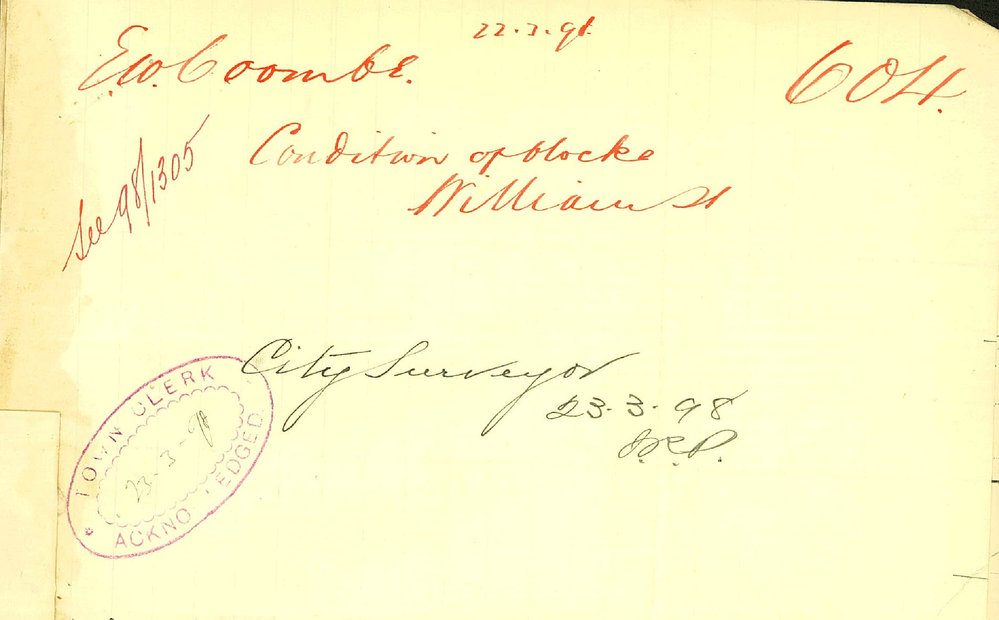 22.3.98
E.W. Coombe.
604.
Condition of blocks
William St
See 98/1305
City Surveyor
23.3.98
TOWN CLERK
23.3.98
ACKNO LEDGED